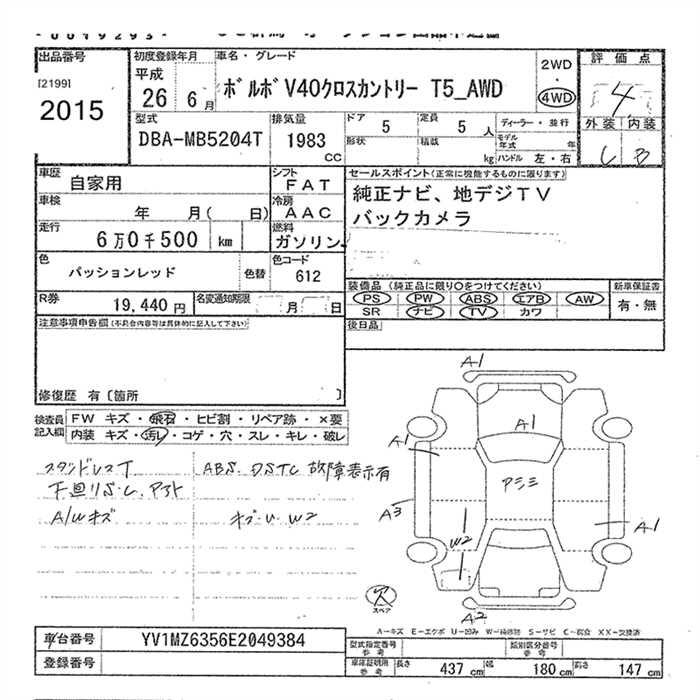 出品番号
[2199]
2015
初度登録年月
平成
26年 6月
車名・グレード
ボルボ V40クロスカントリー T5_AWD
2WD
・
4WD
評価点
4
外装 内装
C B
型式
DBA-MB5204T
排気量
1983
CC
ドア
5
定員
5 人
形状
積載
kg
ディーラー・並行
モデル
年式 年
ハンドル 左・右
車歴
自家用
シフト
FAT
車検
年 月( 日)
冷房
AAC
走行
6万0千500 km
燃料
ガソリン
色
パッションレッド
色替
色コード
612
R券
19,440 円
名変通知期限
月 日
セールスポイント(正常に機能するものに限ります)
純正ナビ、地デジTV
バックカメラ
装備品 (純正品に限り○をつけてください)
PS PW ABS エアB AW
SR ナビ TV カワ
新車保証書
有・無
後日品
注意事項申告欄(不具合内容等は具体的に記入して下さい)
修復歴 有〔箇所 〕
検査員
記入欄
FW キズ・飛石・ヒビ割・リペア跡・×要
内装 キズ・汚レ・コゲ・穴・スレ・キレ・破レ
スタンドレスT
下廻りS.C.アト
A/Wキズ
ABS DSTC 故障表示有
A1
A1
A1
アミミ
A3
A1
W2
A2
欠
スペア
A-キズ E-エクボ U-凹み W-補修跡 S-サビ C-腐食 XX-交換済
車台番号
YV1MZ6356E2049384
登録番号
型式指定番号
参考
類別区分番号
参考
車庫証明用
参考
長さ
437 cm
幅
180 cm
高さ
147 cm